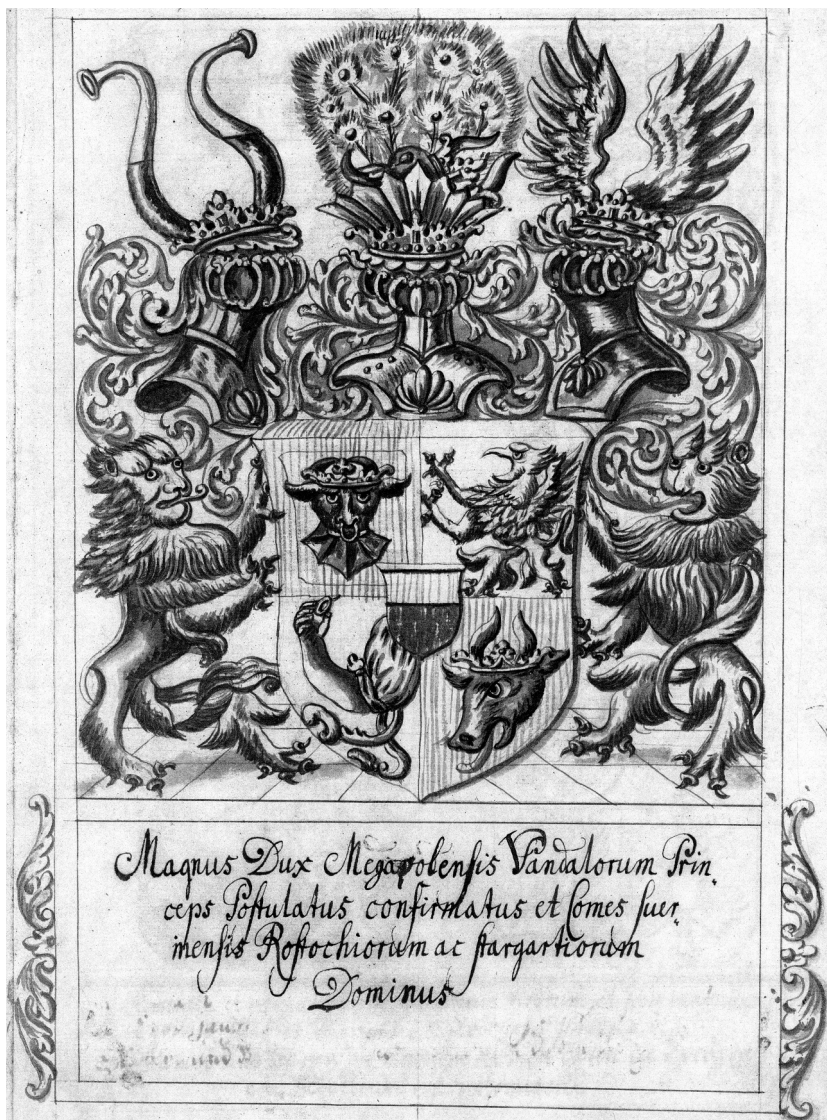 Magnus Dux Megapolensis Vandalorum Prin-
ceps Postulatus confirmatus et Comes suer-
inensis Rostochiorum ac stargartiorum
Dominus